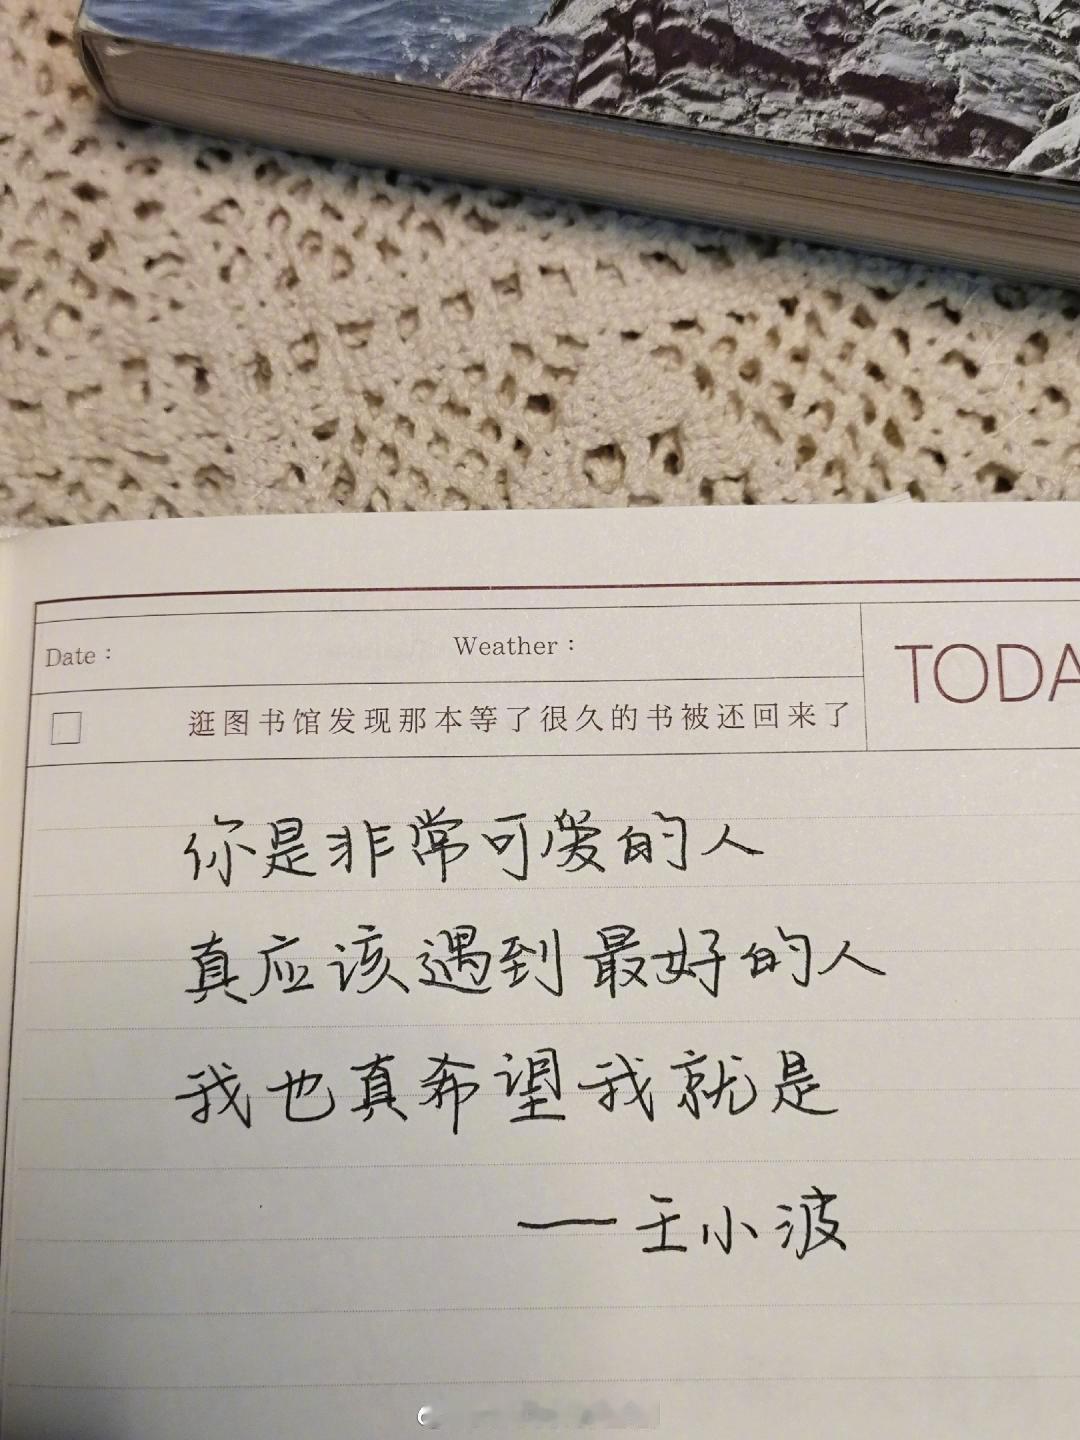 Date：
Weather：
TODA
逛图书馆发现那本等了很久的书被还回来了
你是非常可爱的人
真应该遇到最好的人
我也真希望我就是
——王小波